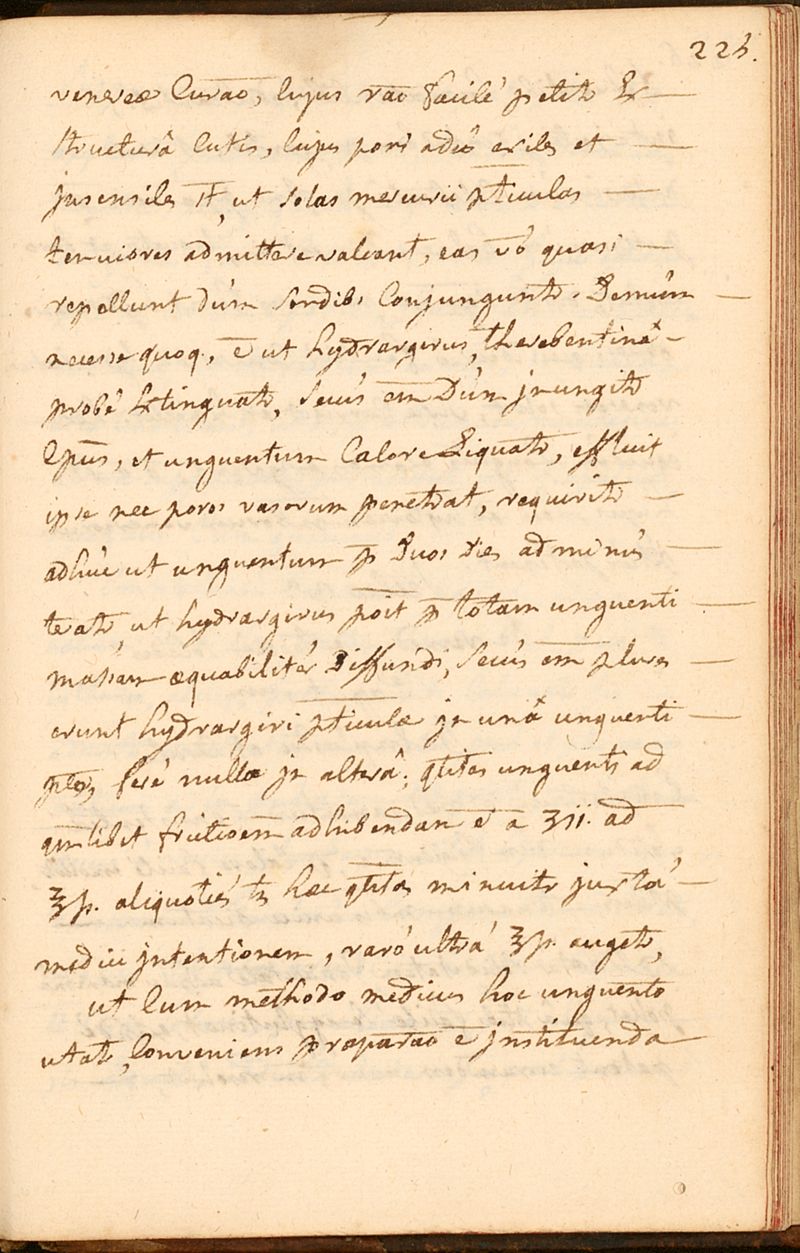 225.
venereæ Curāo, cujus rāo facilè petit^r Ex
structurâ cutis, cujus pori adeò exiles et
insensiles s̄t, ut solas mercurii p̄ticulas
tenuiores admittere valeant, eas v̄ò quasi
repellunt dùm sordib, Conjungunt^r. Demùm
necesse quoq, ē ut hydrargirus, therebentinâ
probè Extinguat^r, secùs em̄ Dùm jnungit^r
Cpūs, et unguentum Calore Liquat^r, effluit
ipse nec poros vasorum penetrat, requirit^r
adhùc ut unguentum p̄ Duos Dies ad minùs
terat^r, ut hydrargirus poīt p̄ totam unguenti
massam æquabilitèr Diffundi, secùs em̄ plures
erunt hydrargiri p̄ticulæ jn unâ unguenti
ferè nullæ jn alterâ; q̄titas unguenti ad
qmlibet frictioem̄ adhibendam ē a ʒii. ad
℥ß. aliquotiès hæc q̄titas minuit^r juxtà
medici jntentionem, rarò ultrà ℥ß. auget^r,
ut Cum methodo medicus hoc unguento
utat^r, Conveniens præparāo ē jnstituenda